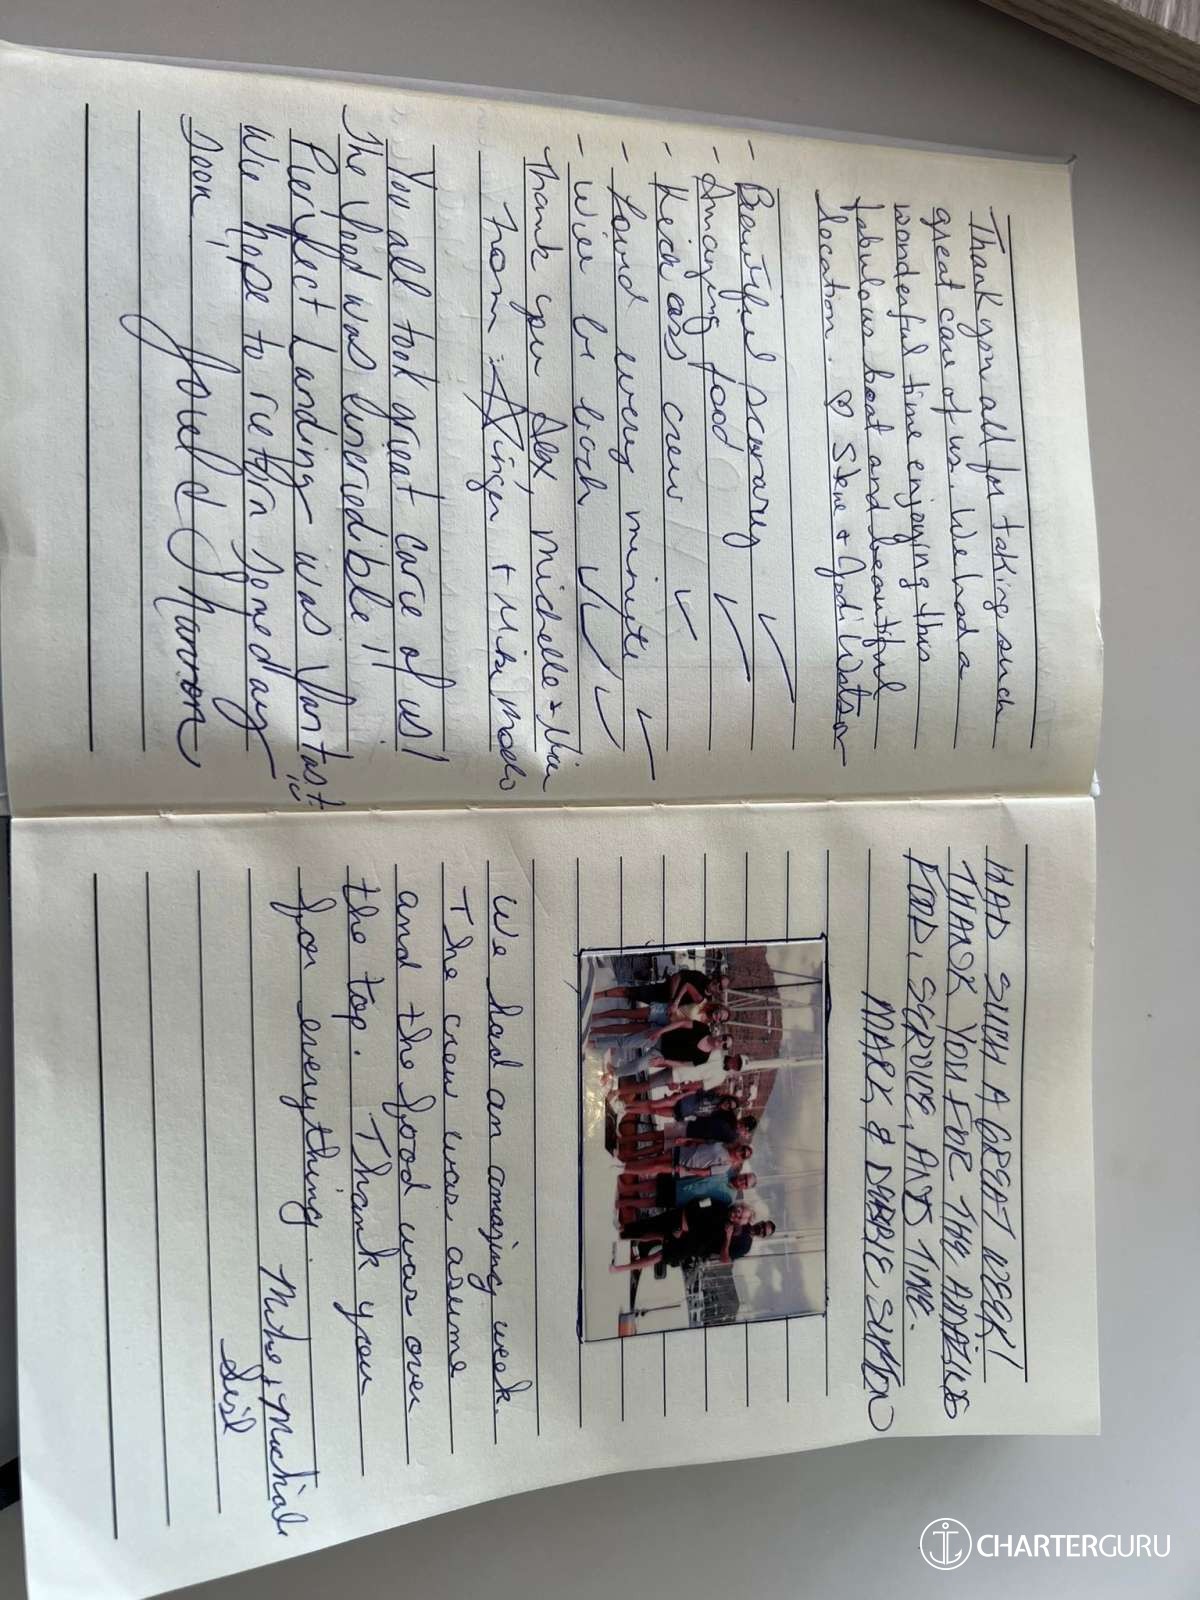 Thank you all for taking such
great care of us. We had a
wonderful time enjoying this
fabulous boat and beautiful
location. ♡ Steve + Jodi Watson
- Beautiful scenarey ✓
- Amazing food ✓
- Kick ass crew ✓
- Loved every minute ✓
- Will be back ✓✓✓
Thank you Alex, Michelle +
From Ginger + Mike
You all took great care of us!
The food was incredible!!
Perfect Landing was fantast
ic
We hope to return someday
soon! Joel & Sharron
HAD SUCH A GREAT WEEK!
THANK YOU FOR THE AMAZING
FOOD, SERVICE, AND TIME.
MARK & DEBBIE SUTTON
We had an amazing week.
The crew was asume
and the food was over
the top. Thank you
for everything.
Mike + Machial
CHARTERGURU